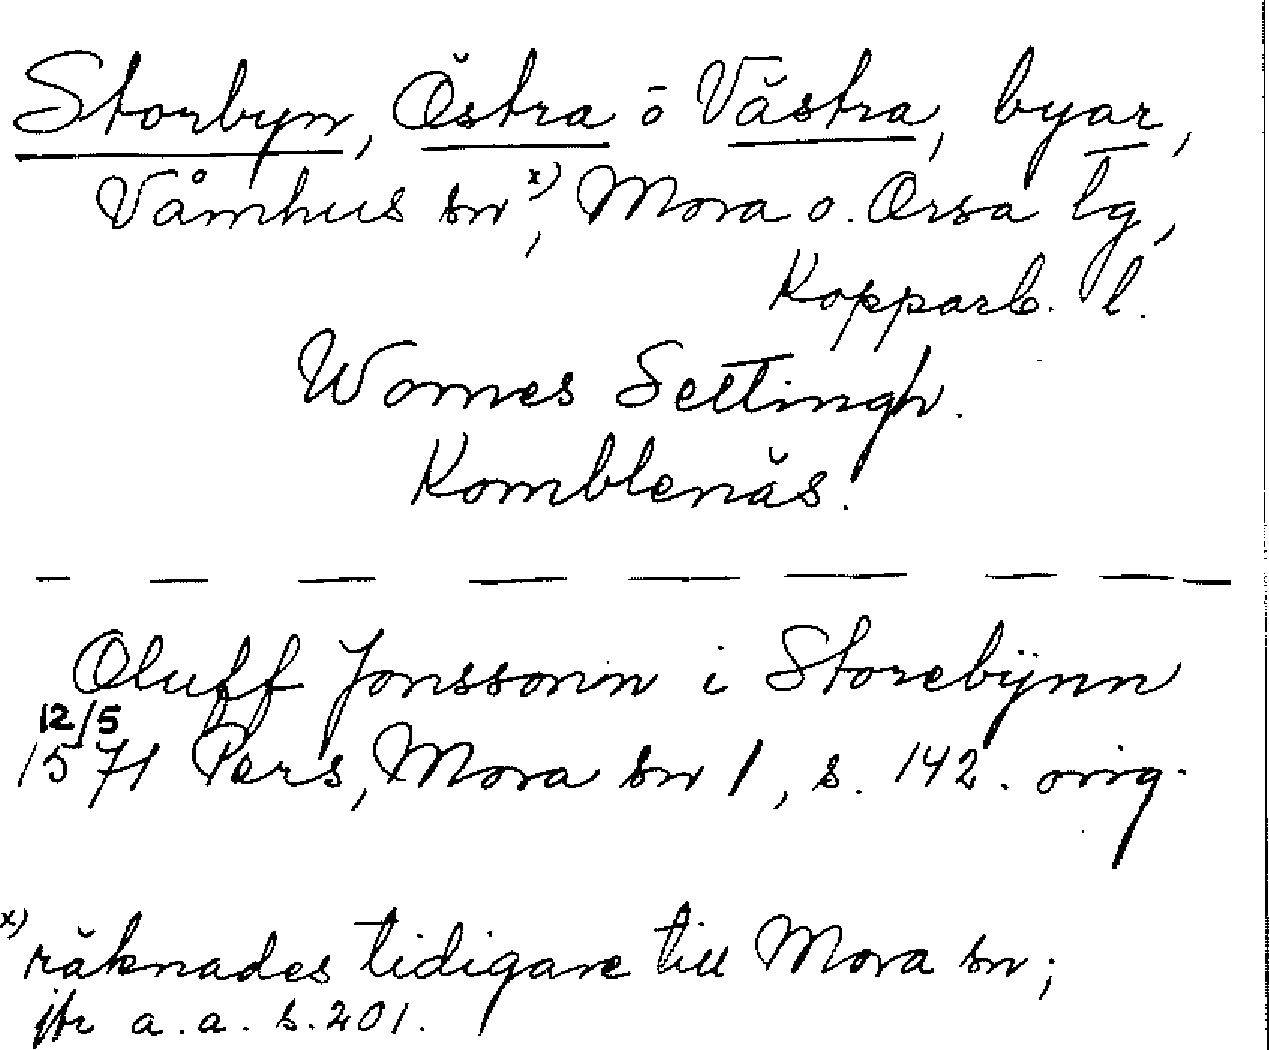 Storbyn, Östra o Västra, byar,
Våmhus sn x), Mora o. Orsa tg,
Kopparb. l.
Womes Settingh.
Komblenäs.
Oluff Jonssonn i Storebÿnn
12/5
1571 Pers, Mora sn 1, s. 142. orig.
x) räknades tidigare till Mora sn;
jfr a.a. s. 201.